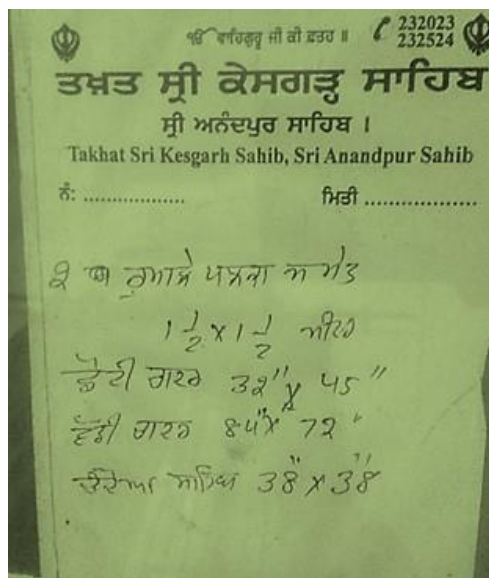 ੴ ਵਾਹਿਗੁਰੂ ਜੀ ਕੀ ਫ਼ਤਹ ॥
232023
232524
ਤਖ਼ਤ ਸ੍ਰੀ ਕੇਸਗੜ੍ਹ ਸਾਹਿਬ
ਸ੍ਰੀ ਅਨੰਦਪੁਰ ਸਾਹਿਬ ।
Takhat Sri Kesgarh Sahib, Sri Anandpur Sahib
ਨੰ: .................. ਮਿਤੀ ...................
ਰੁਮਾਲੇ
1 1/2 x 1 1/2 ਮੀਟਰ
ਛੋਟੀ ਚਾਦਰ 32" x 45"
ਵੱਡੀ ਚਾਦਰ 84" x 72"
ਚੰਦੋਆ ਸਾਹਿਬ 38" x 38"